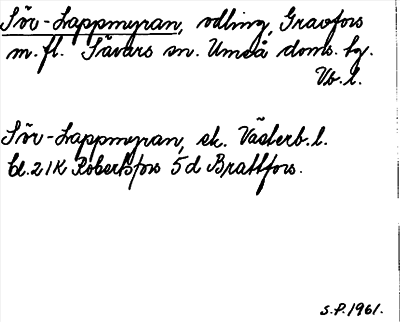 Sör-Lappmyran, odling, Gravfors
m.fl. Sävars sn. Umeå doms. hg.
Vb.l.
Sör-Lappmyran, ek. Västerb.l.
bl. 21K Robertsfors 5d Brattfors.
S.P. 1961.